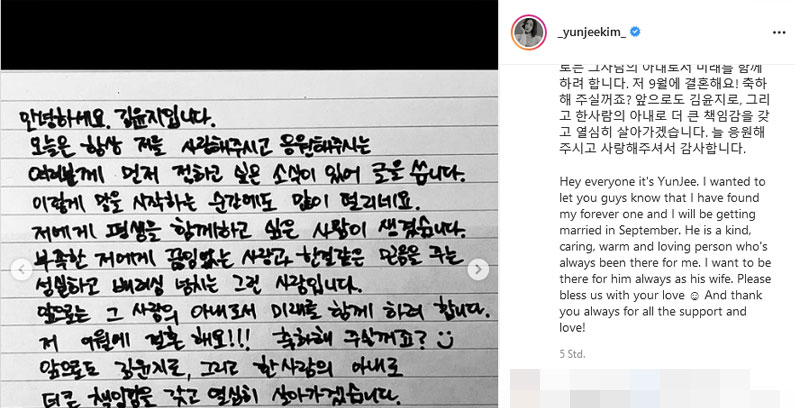 안녕하세요. 김윤지입니다.
오늘은 항상 저를 사랑해주시고 응원해주시는
여러분께 먼저 전하고 싶은 소식이 있어 글을 씁니다.
이렇게 말을 시작하는 순간에도 많이 떨리네요.
저에게 평생을 함께하고 싶은 사람이 생겼습니다.
부족한 저에게 끊임없는 사랑과 한결같은 믿음을 주는
성실하고 배려심 넘치는 그런 사람입니다.
앞으로는 그 사람의 아내로서 미래를 함께 하려 합니다.
저 9월에 결혼해요!!! 축하해 주실꺼죠? ☺
앞으로도 김윤지로, 그리고 한사람의 아내로
더 큰 책임감을 갖고 열심히 살아가겠습니다.
_yunjeekim_
로는 그사람의 아내로서 미래를 함께
하려 합니다. 저 9월에 결혼해요! 축하
해 주실꺼죠? 앞으로도 김윤지로, 그리
고 한사람의 아내로 더 큰 책임감을 갖
고 열심히 살아가겠습니다. 늘 응원해
주시고 사랑해주셔서 감사합니다.
Hey everyone it's YunJee. I wanted to
let you guys know that I have found
my forever one and I will be getting
married in September. He is a kind,
caring, warm and loving person who's
always been there for me. I want to be
there for him always as his wife. Please
bless us with your love ☺ And thank
you always for all the support and
love!
5 Std.